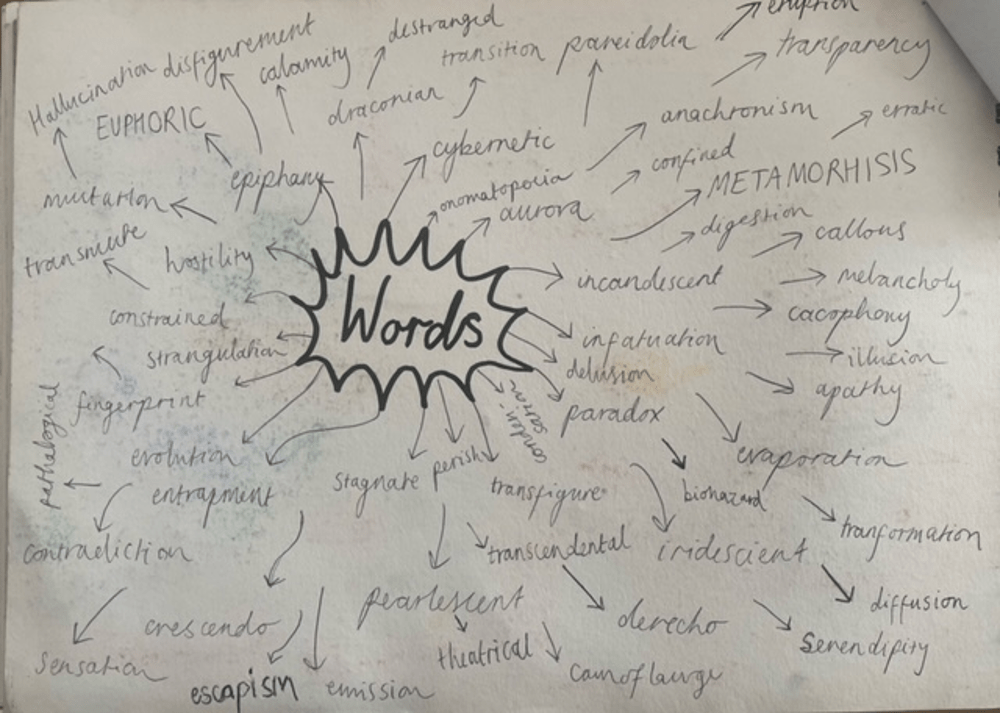 eruption
destranged
disfigurement
Hallucination
calamity
transition
pareidolia
transparency
draconian
EUPHORIC
anachronism
erratic
cybernetic
confined
epiphany
onomatopoeia
METAMORHISIS
mutation
aurora
digestion
callous
transmute
hostility
incandescent
melancholy
constrained
Words
cacophony
strangulation
infatuation
illusion
delusion
apathy
fingerprint
paradox
conden-
sation
pathalogical
evolution
perish
evaporation
entrapment
stagnate
transfigure
biohazard
tranformation
contradiction
transcendental
iridescient
pearlescent
diffusion
crescendo
derecho
Serendipity
sensation
theatrical
escapism
emission
camoflauge